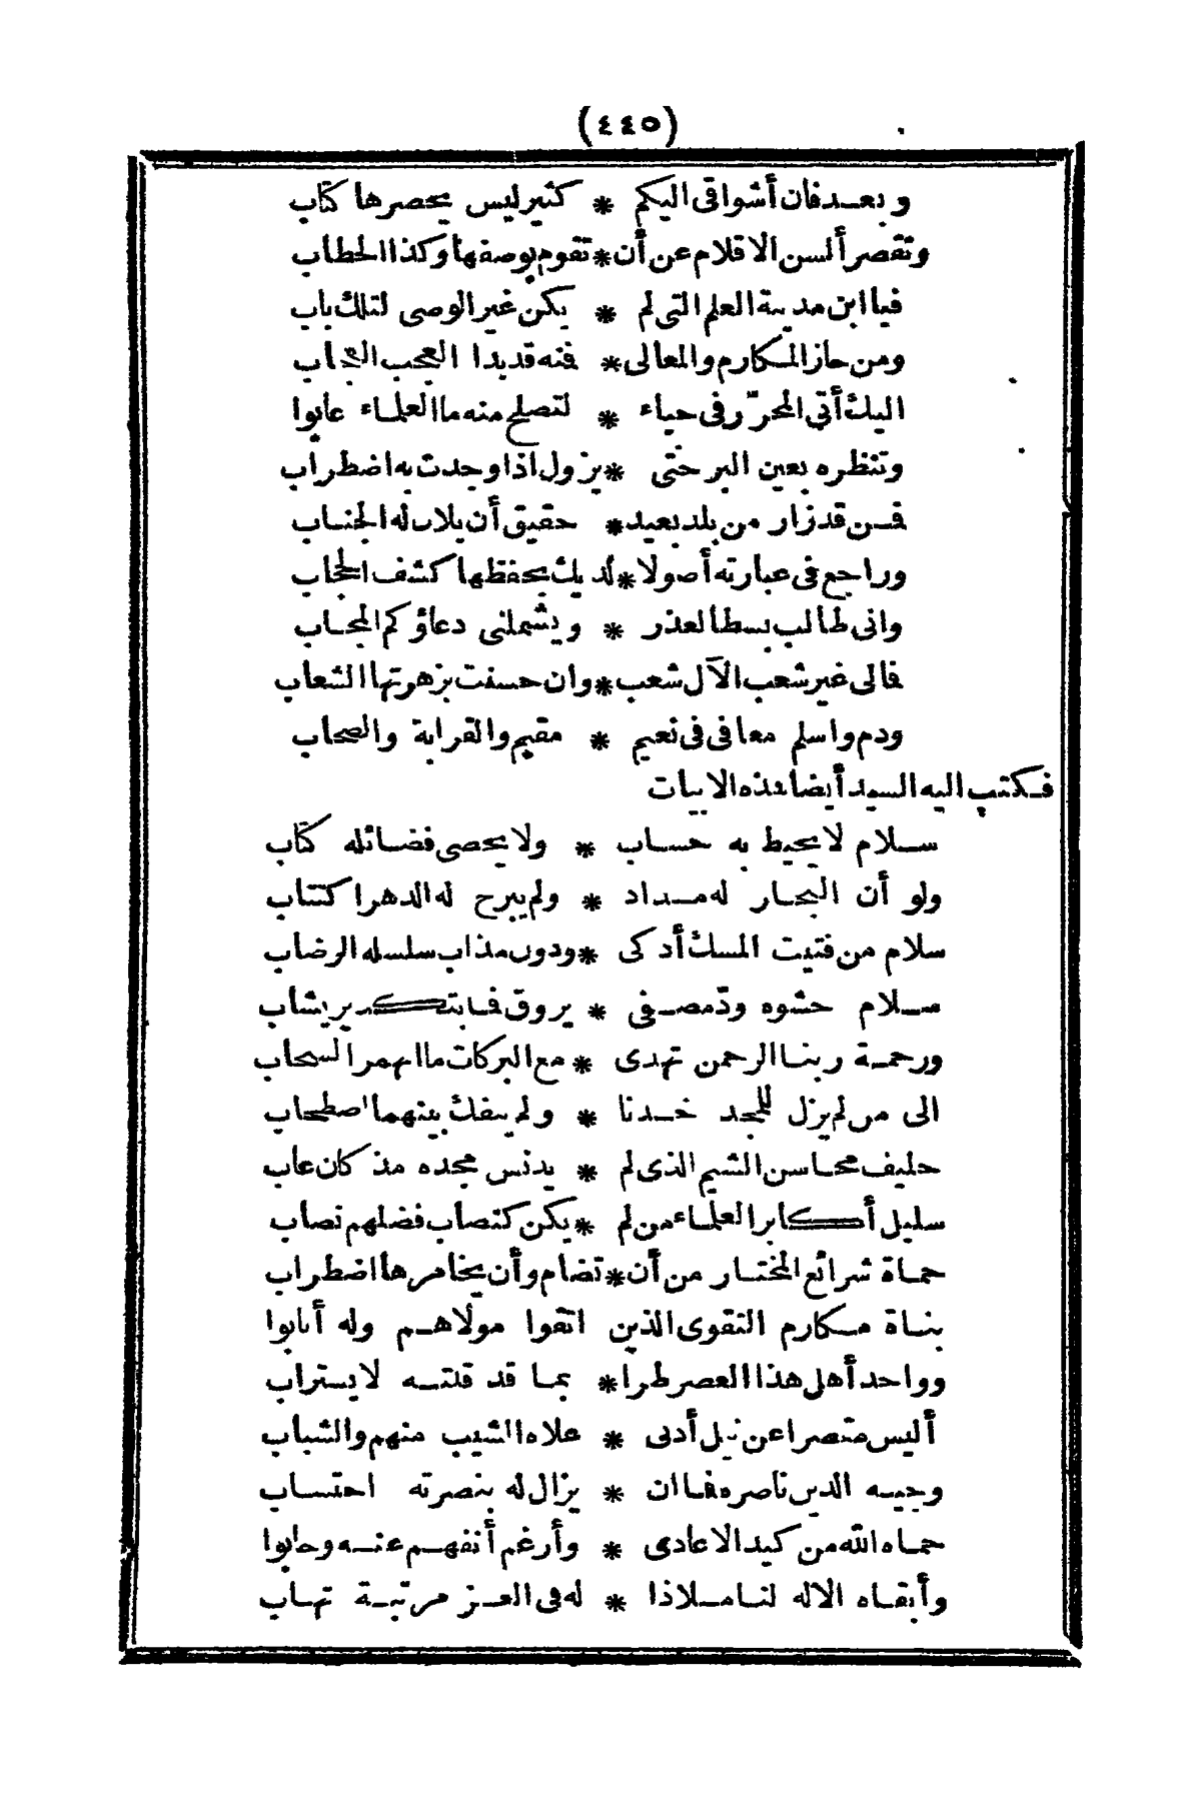 (٤٤٥)
وبعد فان أشواقى اليكم * كثير ليس يحصرها كتاب
وتقصر ألسن الاقلام عن أن * تقوم بوصفها وكذا الخطاب
فيا ابن مدينة العلم التى لم * يكن غير الوصى لتلك باب
ومن حاز المكارم والمعالى * فنه قد بدا العجب العجاب
اليك أتى المحرّر فى حياء * لتصلح منه ما العلماء عابوا
وتنظره بعين البر حتى * يزول اذا وجدت به اضطراب
فمن قد زار من بلد بعيد * حقيق أن يلان له الجناب
وراجع فى عبارته أصولا * لديك بحفظها كشف الحجاب
وانى طالب بسط العذر * ويشملنى دعاؤكم المجاب
فالى غير شعب الآل شعب * وان حسنت بزهرتها الشعاب
ودم واسلم معافى فى نعيم * مقيم والقرابة والصحاب
فكتب اليه السيد أيضا هذه الابيات
سلام لا يحيط به حساب * ولا يحصى فضائله كتاب
ولو أن البحار له مداد * ولم يبرح له الدهر اكتتاب
سلام من فتيت المسك أذكى * ودون مذاب سلسله الرضاب
سلام حشوه ودّ مصفى * يروق فما بتكدير يشاب
ورحمة ربنا الرحمن تهدى * مع البركات ما انهمر السحاب
الى من لم يزل للمجد خدنا * ولم ينفك بينهما اصطحاب
حليف محاسن الشيم الذى لم * يدنس مجده مذ كان عاب
سليل أكابر العلماء من لم * يكن كنصاب فضلهم نصاب
حماة شرائع المختار من أن * تضام وأن يخامرها اضطراب
بناة مكارم التقوى الذين اتقوا مولاهم وله أنابوا
وواحد أهل هذا العصر طرا * بما قد قلته لا يستراب
أليس مقصرا عن نيل أدنى * علاه الشيب منهم والشباب
وجيه الدين ناصره فما ان * يزال له بنصرته احتساب
حماه الله من كيد الاعادى * وأرغم أنفهم عنه وخابوا
وأبقاه الاله لنا ملاذا * له فى العز مرتبة تهاب